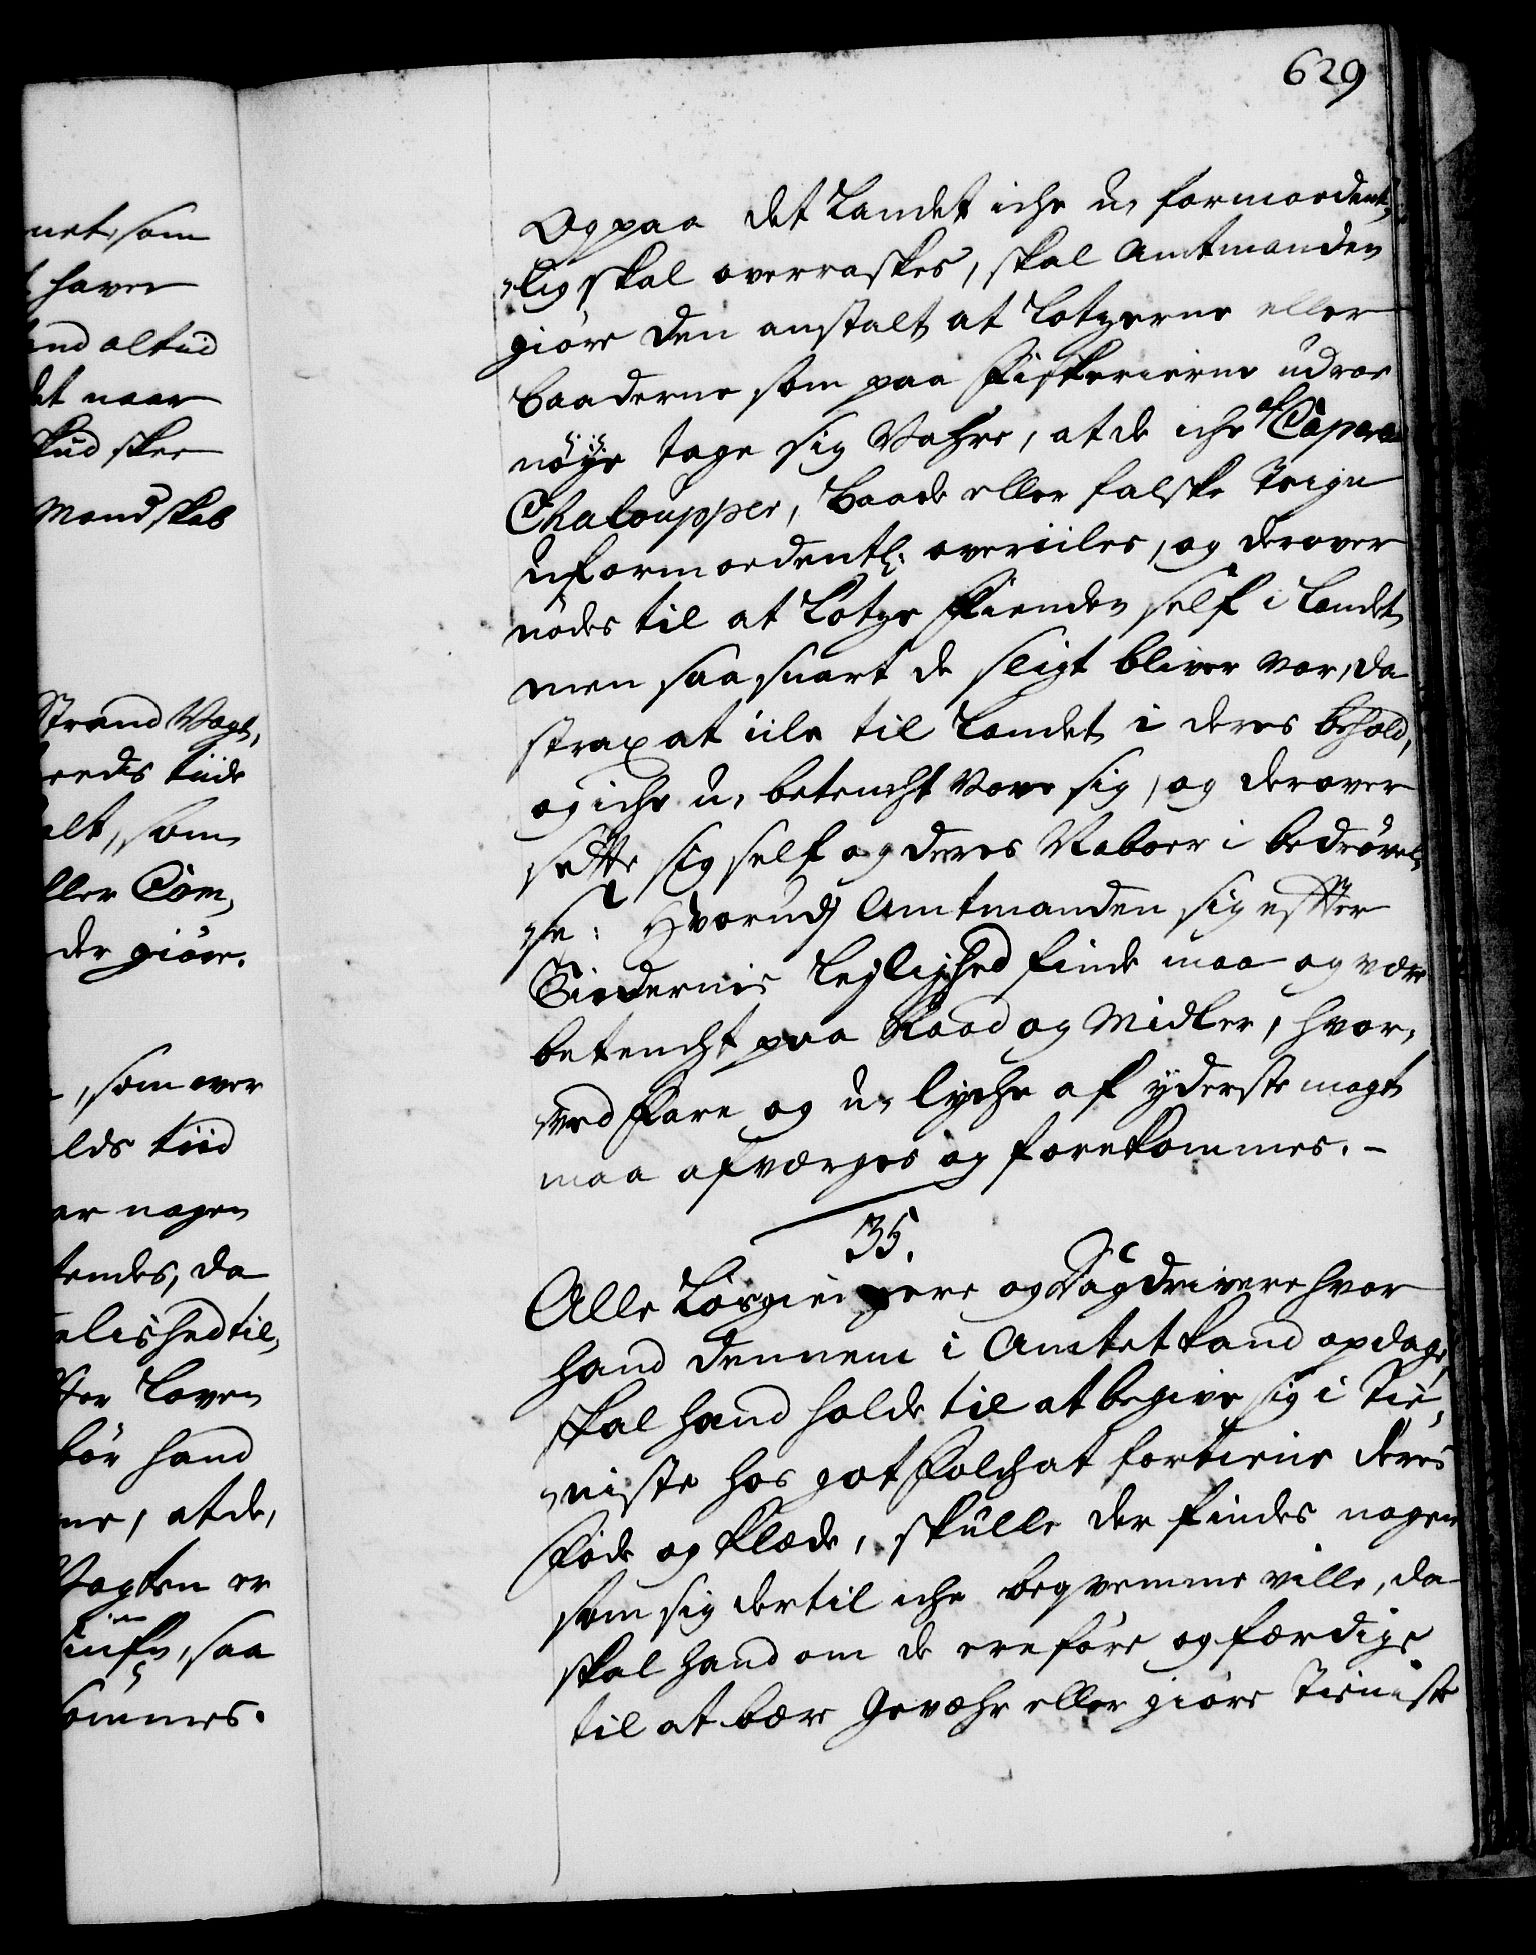 629
Og paa det Landet iche u, formoedent,
,,lig skal overraskes, skal Amtmanden
giöre den anstalt at Lotzerne eller
baaderne som paa Fiskerierne udroe
nöÿe tage sig Vahre, at de iche af Capere
Chaloupper, baade eller falske Teign
uformoedentl: overiiles, og derover
nödes til at Lotze Fienden self i Landet
men saa snart de sligt bliver var, da
strax at iile til Landet i deres behold,
og iche u, betencht Vove sig, og derover
sette sig self og deres Naboer i bedrövel,
,,se; Hvorudj Amtmanden sig efter
Tiidernis Lejlighed finde maa og være
betencht paa Raad og Midler, hvor,
,,ved Fare og u, lyche af ÿderste magt
maa afværges og forekommes. -
35.
Alle Lösgiengere og Dagdrivere hvor
hand dennem i Amtet kand opdage,
skal hand holde til at begive sig i Tie,
,,niste hos got Folch at fortiene deres
Föde og Klæde, skulle der findes nogen
som sig dertil iche beqvemme ville, da
skal hand om de ere före og færdige
til at bære Gevæhr eller giöre Tieniste
net, som
haver
and altiid
det naar
skud skee
Mandskab
Strand Vagt,
tiide
alt, som
ller Com,
der giöre.
, som over
lds tiid
er nogen
tendes, da
elished til,
ter Loven
bör hand
ne, at de,
Vagten er
saa
kommes.